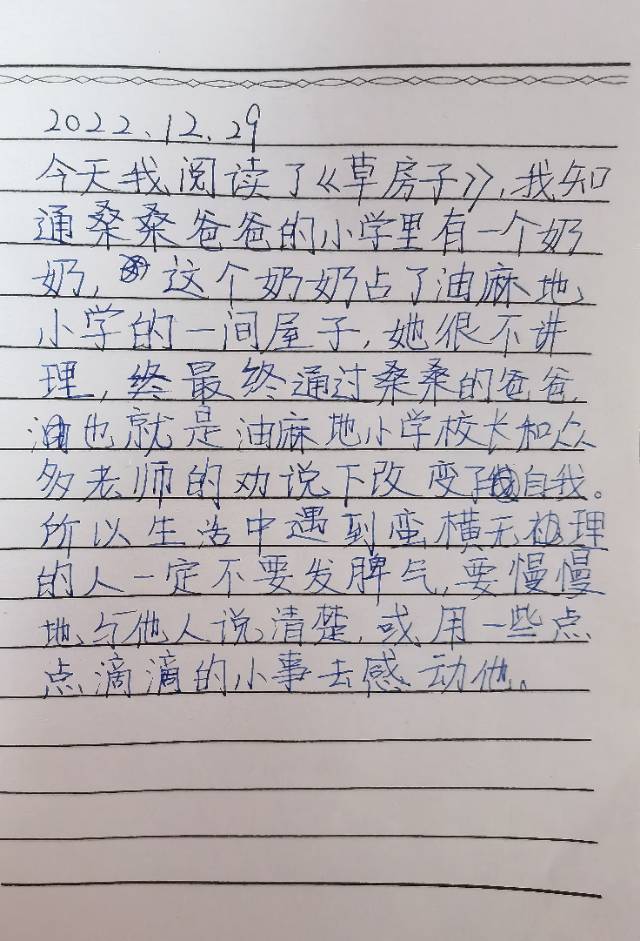 2022.12.29
今天我阅读了《草房子》,我知
通桑桑爸爸的小学里有一个奶
奶,这个奶奶占了油麻地
小学的一间屋子,她很不讲
理,终最终通过桑桑的爸爸,
也就是油麻地小学校长和众
多老师的劝说下改变了自我。
所以生活中遇到蛮横无理
的人一定不要发脾气,要慢慢
地与他人说清楚,或用一些点
点滴滴的小事去感动他。